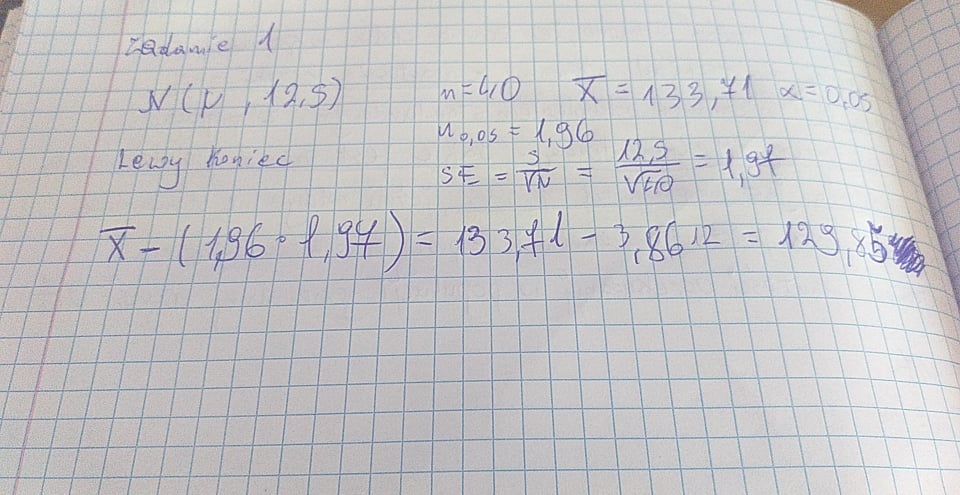 Zadanie 1
N(μ, 12,5) n=40 X̄ = 133,71 α=0,05
u0,05 = 1,96
Lewy koniec SE = S/√N = 12,5/√40 = 1,97
X̄ - (1,96 · 1,97) = 133,71 - 3,8612 = 129,85